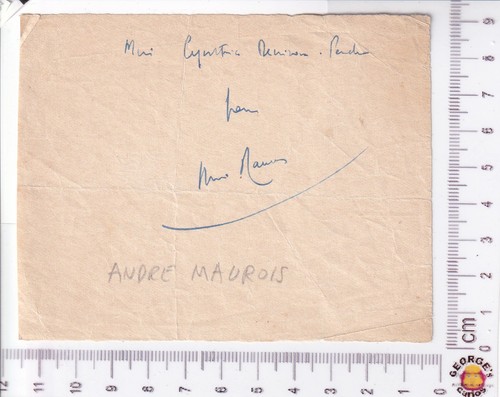 Miss Cynthia
from
André Maurois
ANDRE MAUROIS
0 1 2 3 4 5 6 7 8 9
cm
12 11 10 9 8 7 6 5 4 3 2 1 0
GEORGE'S
Curios